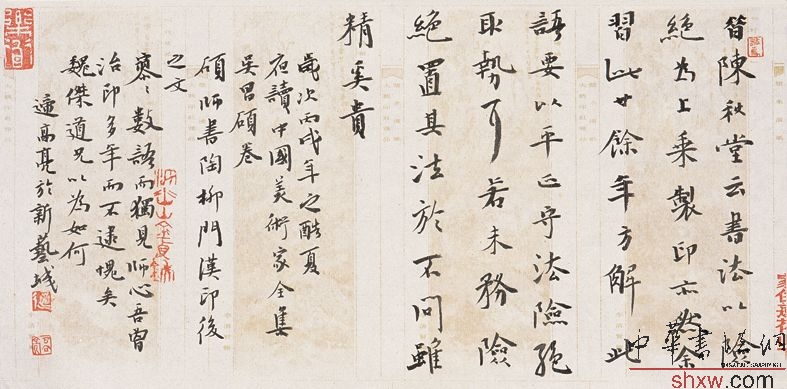 昔陳秋堂云書法以險
絕為上乘製印亦然余
習此廿餘年方解此
語要以平正守法險絕
取執耳若未務險
絕置其法於不問雖
精奚貴
歲次丙戌年之酷夏
夜讀中國美術家全集
吳昌碩卷
碩師書陶柳門漢印後
之文
寥〻數語而獨見師心吾曾
治印多年而不逮愧矣
魏傑道兄以為如何
適高亮於新藝城
中華書畫網
shxw.com